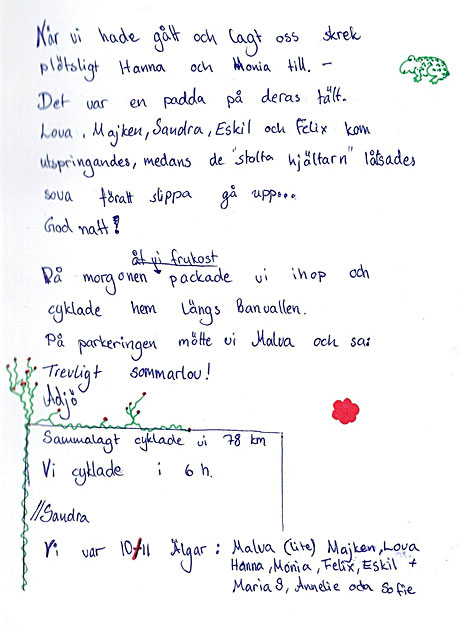 När vi hade gått och lagt oss skrek
plötsligt Hanna och Monia till. -
Det var en padda på deras tält.
Lova, Majken, Sandra, Eskil och Felix kom
utspringandes, medans de "stolta hjältarn" låtsades
sova föratt slippa gå upp...
God natt!
åt vi frukost
På morgonen packade vi ihop och
cyklade hem längs Banvallen.
På parkeringen mötte vi Malva och sa:
Trevligt sommarlov!
Adjö
Sammalagt cyklade vi 78 km
Vi cyklade i 6 h.
//Sandra
Vi var 10/11 Älgar: Malva (lite) Majken, Lova
Hanna, Monia, Felix, Eskil +
Maria S, Annelie och Sofie